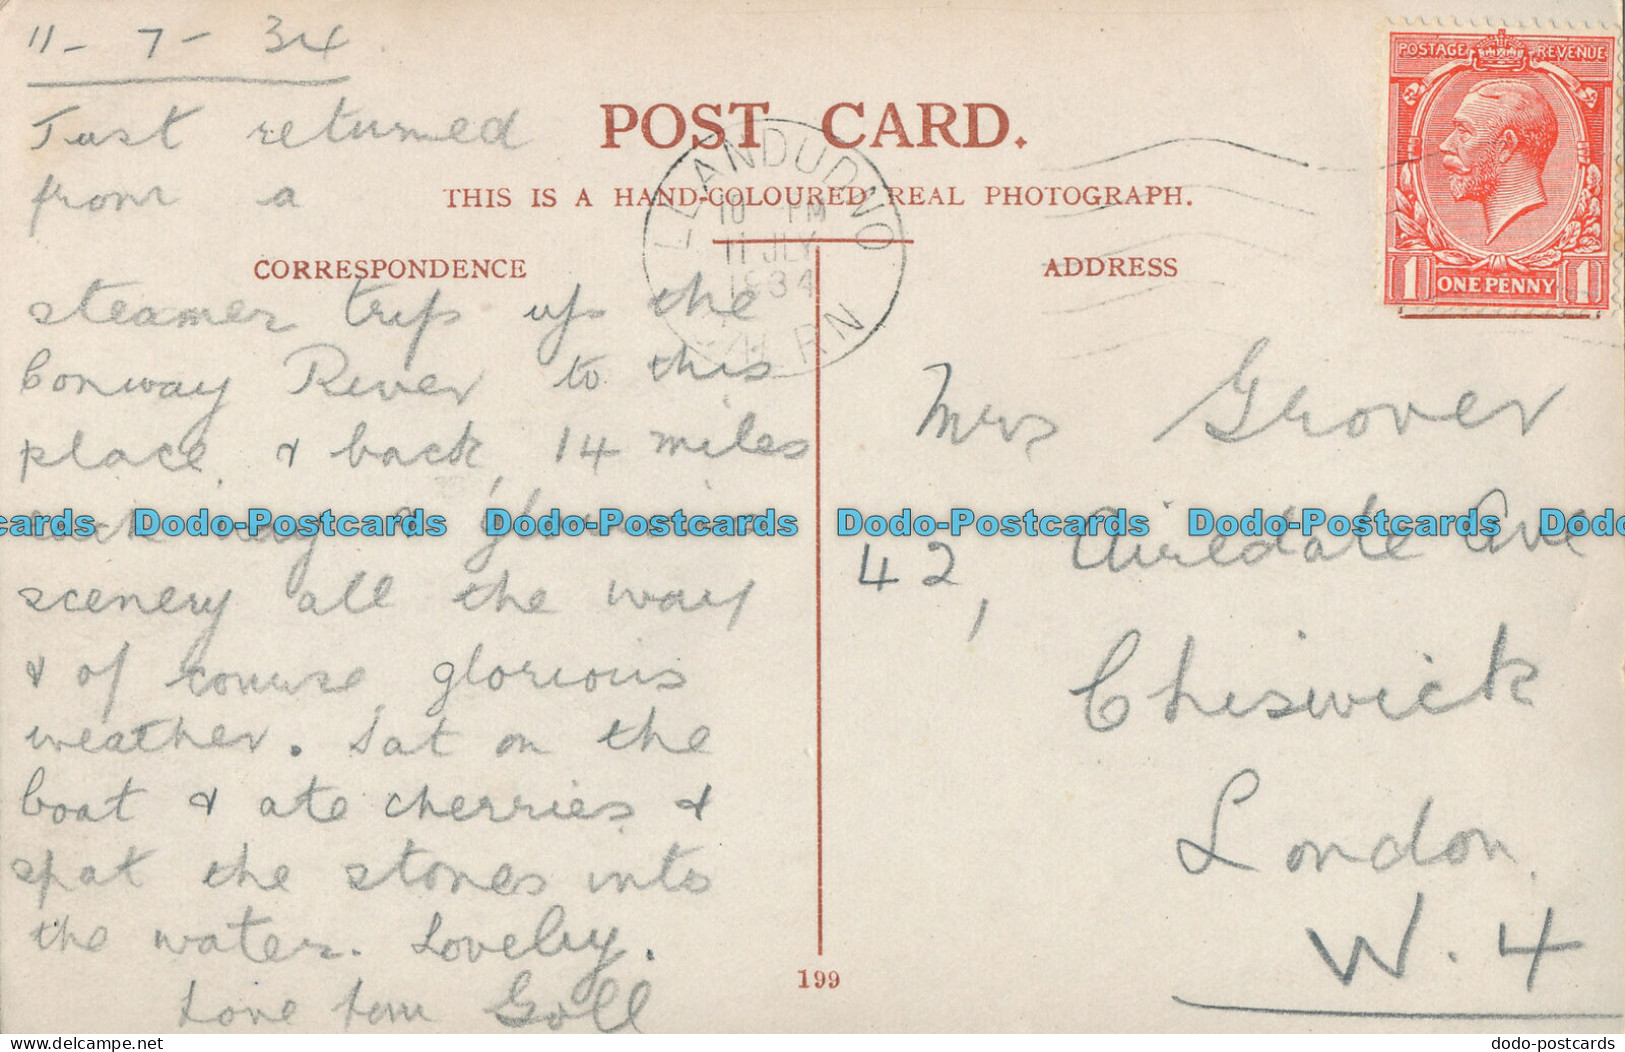 11-7-34
Just returned
from a
steamer trip up the
Conway River to this
place & back, 14 miles
each way & glorious
scenery all the way
& of course glorious
weather. Sat on the
boat & ate cherries &
spat the stones into
the water. Lovely.
Love from
POST CARD.
THIS IS A HAND-COLOURED REAL PHOTOGRAPH.
CORRESPONDENCE
ADDRESS
LLANDUDNO
10 PM
11 JLY
1934
POSTAGE REVENUE
1 ONE PENNY 1
Mrs Grover
42, Airedale Ave
Chiswick
London
W.4
199
Dodo-Postcards Dodo-Postcards Dodo-Postcards Dodo-Postcards
https://www.delcampe.net/en_US/collectibles/store/
dodo-postcards